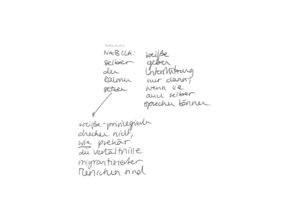 NABILA:
selber
den
Rahmen
setzen
weiße
geben
Unterstützung
nur dann,
wenn sie
auch selber
sprechen können
weiße-privilegierte
checken nicht,
wie prekär
die Verhältnisse
migrantisierter
Menschen sind